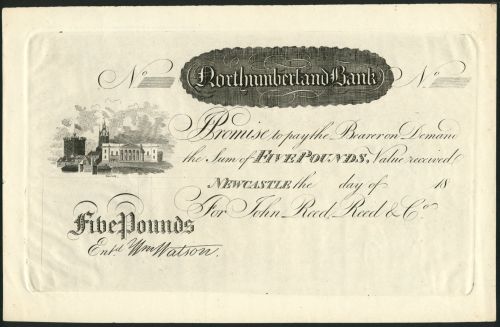 Northumberland Bank
No No
Promise to pay the Bearer on Demand
the Sum of FIVE POUNDS, Value received
NEWCASTLE the day of 18
For John Reed, Reed & Co
Five Pounds
Entd Wm Watson.